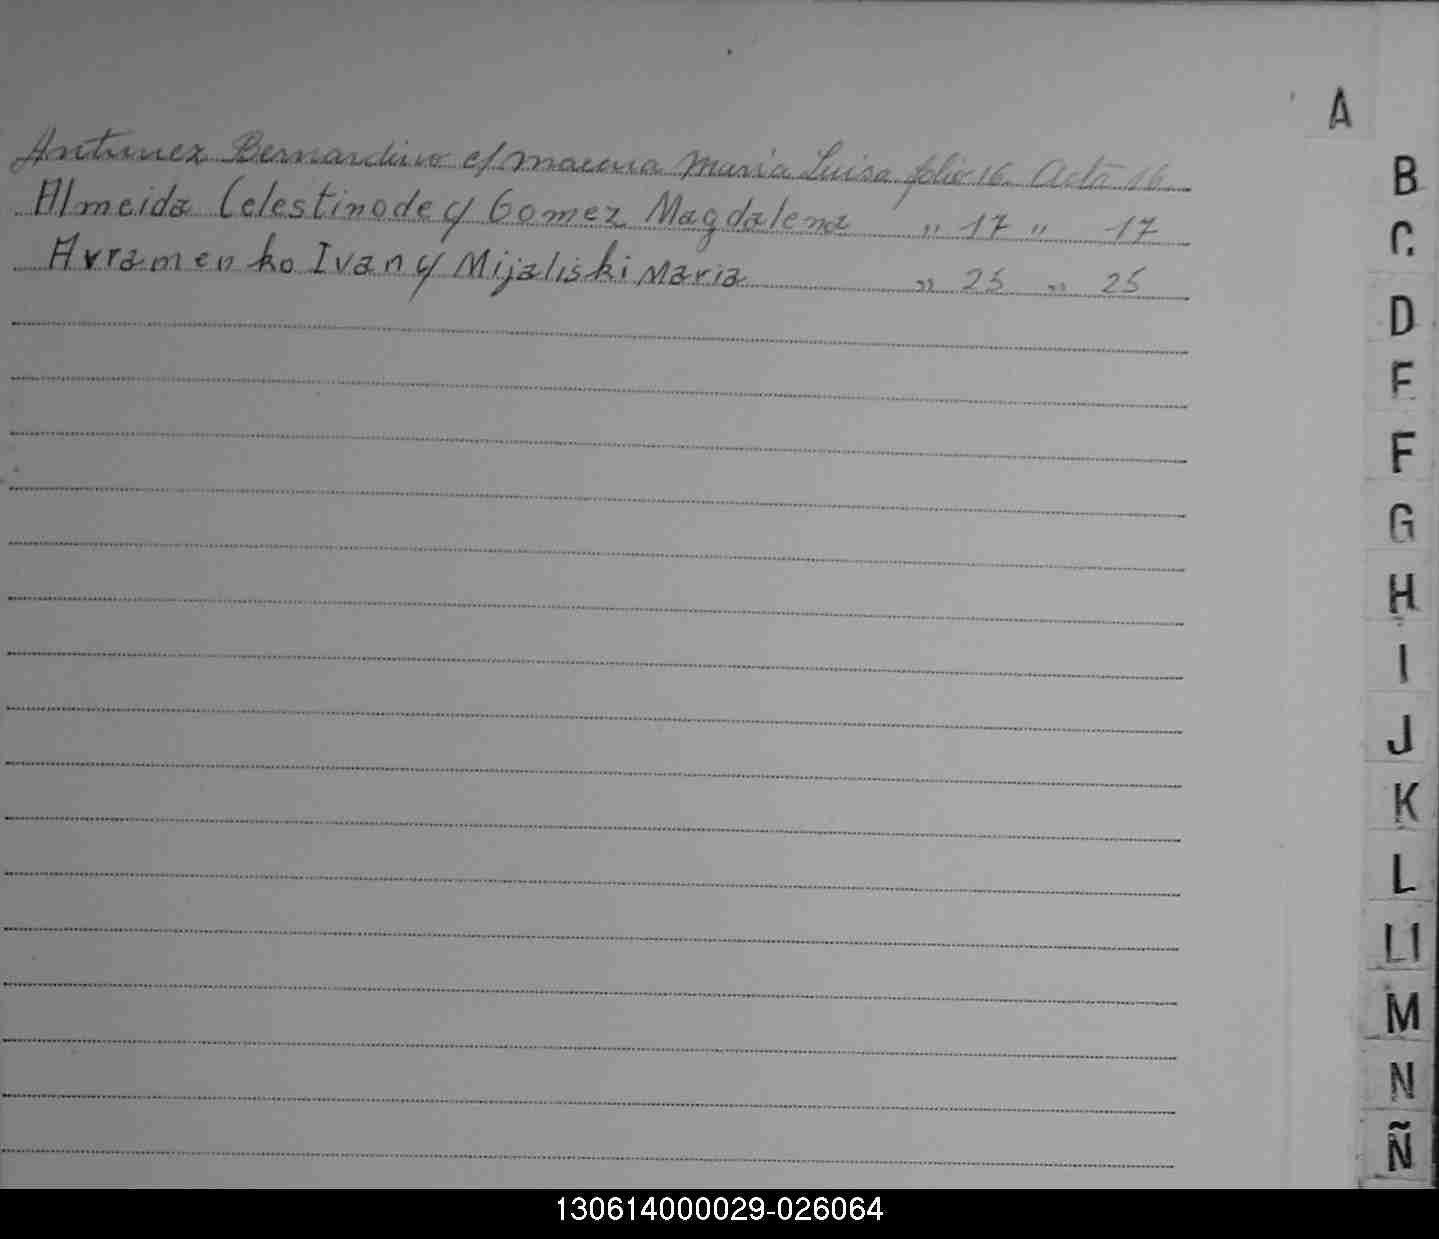 A
Antunez Bernardino c/ Maciuia Maria Luisa folio 16 Acta 16
Almeida Celestino de c/ Gomez Magdalena " 17 " 17
Avramenko Ivan c/ Mijaliski Maria " 25 " 25
B
C
D
E
F
G
H
I
J
K
L
Ll
M
N
Ñ
130614000029-026064